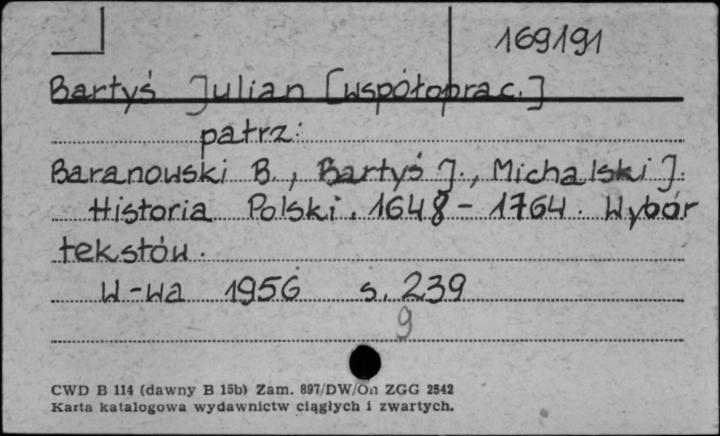 169191
Bartyś Julian [współoprac.]
patrz:
Baranowski B., Bartyś J., Michalski J.
Historia Polski. 1648 - 1764. Wybór
tekstów.
W-wa 1956 s. 239
9
CWD B 114 (dawny B 15b) Zam. 897/DW/On ZGG 2542
Karta katalogowa wydawnictw ciągłych i zwartych.